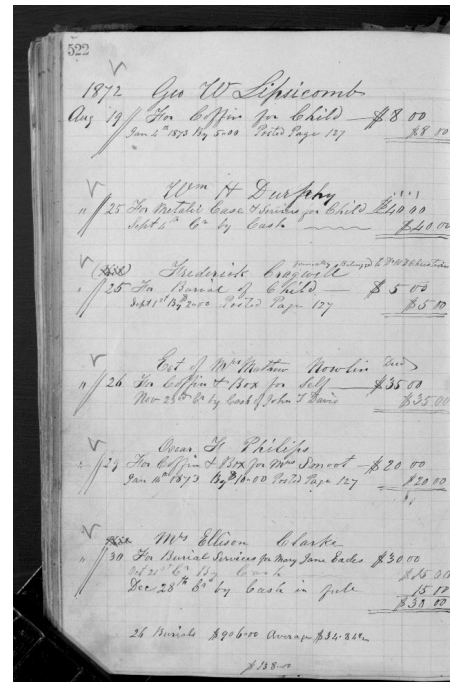 522
1872 Geo W Lipsicomb
Aug 19 For Coffin for Child $8 00
Jan 4th 1873 By 5.00 Posted Page 127 $8 00
Wm H Durphy
" 25 For Metalic Case & Servises for Child $40 00
Sept 4th Cr by Cash $40.00
Frederick Cragwill formally Belonged to
" 25 For Burial of Child $5 00
Sept 1st By 2.00 Posted Page 127 $5 00
Est of Mrs Mathew Nowlin Decd
" 26 For Coffin & Box for Self $35 00
Nov 23rd Cr by Cash of John T Davis $35.00
Oscar H Philips
" 29 For Coffin & Box for Mrs Smoot $20.00
Jan 16th 1873 By $10.00 Posted Page 127 $20 00
Mrs Ellison Clarke
" 30 For Burial Servises for Mary Jane Eades $30 00
Oct 21st Cr By Cash $15 00
Dec 28th Cr by Cash in full 15 00
$30 00
26 Burials $906.00 Average $34.84
$138.00